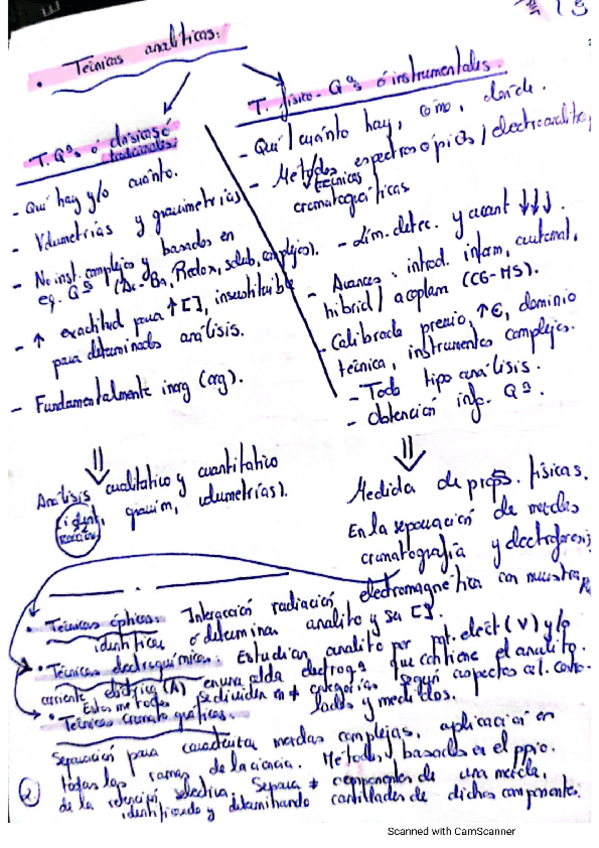 • Técnicas analíticas:
T. Qªs ó clásicas ó
tradicionales:
- Qué hay y/o cuánto.
- Volumetrías y gravimetrías
- No inst. complejos y basados en
eq. Qº (Ac-Ba, Redox, solub, complejos).
- ↑ exactitud para ↑[], insustituible
para determinados análisis.
- Fundamentalmente inorg (org).
⇓
Análisis cualitativo y cuantitativo
gravim, volumetrías).
T. físico-Qªs ó instrumentales.
- Qué / cuánto hay, cómo, dónde.
- Métodos espectroscópicos / electroanalít,
técnicas
cromatográficas
- Lím. detec. y cuant ↓↓↓.
- Avances: introd. inform, automat,
hibrid / acoplam (CG-MS).
- Calibrado previo, ↑€, dominio
técnica, instrumentos complejos.
- Todo tipo análisis.
- Obtención info. Qª.
⇓
Medida de props. físicas.
En la separación de mezclas
cromatografía y electroforesis
• Técnicas ópticas: Interacción radiación electromagnética con muestra
identificar o determinar analito y su [].
• Técnicas electroquímicas: Estudian analito por pot. eléct (V) y/o
corriente eléctrica (A) en una celda electroqª que contiene el analito.
Estos métodos se dividen en ≠ categorías según aspectos cel. contro-
lados y medidos.
• Técnicas cromatográficas:
Separación para caracterizar mezclas complejas, aplicación en
todas las ramas de la ciencia. Métodos basados en el ppio.
de la retención selectiva. Separa ≠ componentes de una mezcla,
identificando y determinando cantidades de dichos componentes.
2
Scanned with CamScanner